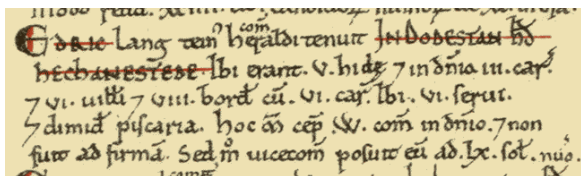 EDRIC Lang tein' com heraldi tenuit IN DODESTAN hd'
HECHANESTEDE Ibi erant .v. hidę ⁊ in dn̄io .iii. car'.
⁊ vi. uilli ⁊ viii. bord' cū .vi. car'. Ibi .vi. serui.
⁊ dimid' piscaria. hoc m̄ cep' .W. com̄ in dn̄io. ⁊ non
fuit ad firmā. Sed m° uicecom̄ posuit eū ad .lx. sol'.